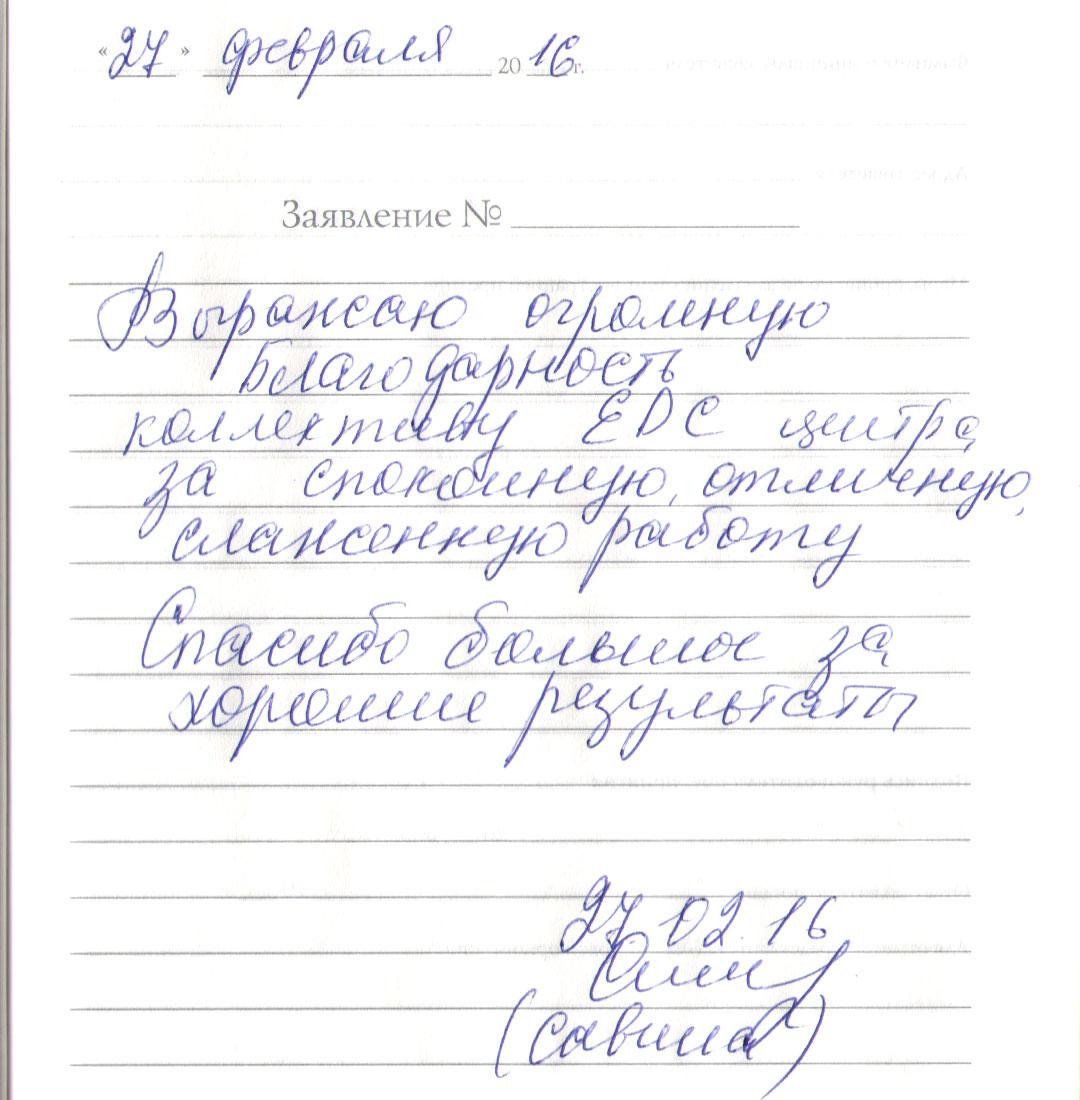 «27» февраля 2016г.
Заявление №
Выражаю огромную
благодарность
коллективу EDC центра
за спокойную, отличную,
слаженную работу
Спасибо большое за
хорошие результаты
27.02.16
(Савина)